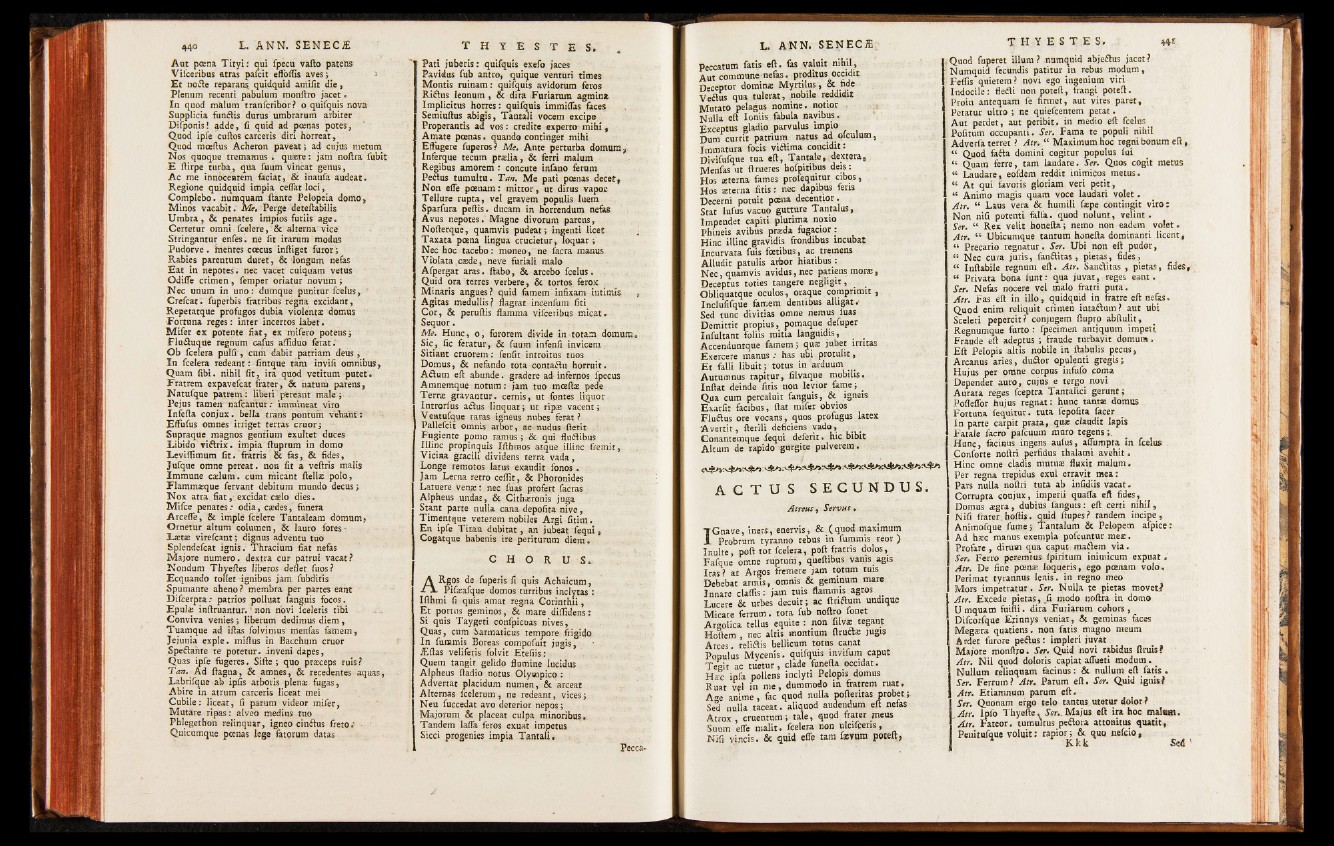 440 L. ANN. SENECÆ
Aut pœna Tityi: qui ſpecu vaſto patens
Viſceribus atras paſcit effoſſis aves;
Et nocte reparans quidquid amiſit die,
Plenum recenti pabulum monſtro jacet.
In quod malum tranſcribor? o quiſquis nova
Supplicia functis durus umbrarum arbiter
Diſponis! adde, ſi quid ad pœnas potes,
Quod ipſe cuſtos carceris diri horreat,
Quod mœſtus Acheron paveat; ad cujus metum
Nos quoque tremamus. quære: jam noſtra ſubit
E ſtirpe turba, quæ ſuum vincat genus,
Ac me innocentem faciat, & inauſa audeat.
Regione quidquid impia ceſſat loci,
Complebo. numquam ſtante Pelopeia domo,
Minos vacabit. Me. Perge deteſtabilis
Umbra, & penates impios furiis age.
Certetur omni ſcelere, & alterna vice
Stringantur enſes. ne ſit irarum modus
Pudorve. mentes cœcus inſtiget furor;
Rabies parentum duret, & longum nefas
Eat in nepotes. nec vacet cuiquam vetus
Odiſſe crimen, ſemper oriatur novum;
Nec unum in uno: dumque punitur ſcelus,
Creſcat. ſuperbis fratribus regna excidant,
Repetatque profugos dubia violentæ domus
Fortuna reges: inter incertos labet.
Miſer ex potente fiat, ex miſero potens;
Fluctuque regnum caſus aſſiduo ferat.
Ob ſcelera pulſi, cum dabit patriam deus,
In ſcelera redeant: ſintque tam inviſi omnibus,
Quam ſibi. nihil ſit, ira quod vetitum putet.
Fratrem expaveſcat frater, & natum parens,
Natuſque patrem: liberi pereant male;
Pejus tamen naſcantur: immineat viro
Infeſta conjux. bella trans pontum vehant:
Effuſus omnes irriget terras cruor;
Supraque magnos gentium exultet duces
Libido victrix. impia ſtuprum in domo
Leviſſimum ſit. fratris & fas, & fides,
Juſque omne pereat. non ſit a veſtris malis
Immune cælum. cum micant ſtellæ polo,
Flammæque ſervant debitum mundo decus;
Nox atra fiat, excidat cælo dies.
Miſce penates: odia, cædes, funera
Arceſſe, & imple ſcelere Tantaleam domum,
Ornetur altum columen, & lauro fores
Lætæ vireſcant; dignus adventu tuo
Splendeſcat ignis. Thracium fiat nefas
Majore numero. dextra cur patrui vacat?
Nondum Thyeſtes liberos deflet ſuos?
Ecquando tollet ignibus jam ſubditis
Spumante aheno? membra per partes eant
Diſcerpta: patrios polluat ſanguis focos.
Epulæ inſtruantur. non novi ſceleris tibi
Conviva venies; liberum dedimus diem,
Tuamque ad iſtas ſolvimus menſas famem,
Jejunia exple. miſtus in Bacchum cruor
Spectante te potetur. inveni dapes,
Quas ipſe fugeres. Siſte; quo præceps ruis?
Tan. Ad ſtagna, & amnes, & recedentes aquas,
Labriſque ab ipſis arboris plenæ fugas,
Abire in atrum carceris liceat mei
Cubile: liceat, ſi parum videor miſer,
Mutare ripas: alveo medius tuo
Phlegethon relinquar, igneo cinctus freto.
Quicumque pœnas lege fatorum datas
THYESTES.
Pati juberis: quiſquis exeſo jaces
Pavidus ſub antro, quique venturi times
Montis ruinam: quiſquis avidorum feros
Rictus leonum, & dira Furiarum agmina
Implicitus horres: quiſquis immiſſas faces
Semiuſtus abigis, Tantali vocem excipe
Properantis ad vos: credite experto mihi,
Amate pœnas. quando continget mihi
Effugere ſuperos? Me. Ante perturba domum,
Inferque tecum prælia, & ferri malum
Regibus amorem: concute inſano ferum
Pectus tumultu. Tan. Me pati pœnas decet,
Non eſſe pœnam: mittor, ut dirus vapor
Tellure rupta, vel gravem populis luem
Sparſura peſtis. ducam in horrendum nefas
Avus nepotes. Magne divorum parens,
Noſterque, quamvis pudeat; ingenti licet
Taxata pœna lingua crucietur, loquar;
Nec hoc tacebo: moneo, ne ſacra manus
Violata cæde, neve furiali malo
Aſpergat aras. ſtabo, & arcebo ſcelus.
Quid ora terres verbere, & tortos ferox
Minaris angues? quid famem infixam intimis
Agitas medullis? flagrat incenſum ſiti
Cor, & peruſtis flamma viſceribus micat.
Sequor.
Me. Hunc, o, furorem divide in totam domum.
Sic, ſic feratur, & ſuum infenſi invicem
Sitiant cruorem: ſenſit introitus tuos
Domus, & nefando tota contactu horruit.
Actum eſt abunde. gradere ad infernos ſpecus
Amnemque notum: jam tuo mœſtæ pede
Terræ gravantur. cernis, ut fontes liquor
Introrſus actus linquat; ut ripæ vacent;
Ventuſque raras igneus nubes ferat?
Palleſcit omnis arbor, ac nudus ſtetit
Fugiente pomo ramus; & qui fluctibus
Illinc propinquis Iſthmos atque illinc fremit,
Vicina gracili dividens terra vada,
Longe remotos latus exaudit ſonos.
Jam Lerna retro ceſſit, & Phoronides
Latuere venæ: nec ſuas profert ſacras
Alpheus undas, & Cithæronis juga
Stant parte nulla cana depoſita nive,
Timentque veterem nobiles Argi ſitim.
En ipſe Titan dubitat, an jubeat ſequi,
Cogatque habenis ire periturum diem.
CHORUS.
ARgos de ſuperis ſi quis Achaicum,
Piſæaſque domos turribus inclytas:
Iſthmi ſi quis amat regna Corinthii,
Et portus geminos, & mare diſſidens:
Si quis Taygeti conſpicuas nives,
Quas, cum Sarmaticus tempore frigido
In ſummis Boreas compoſuit jugis,
Æſtas veliferis ſolvit Eteſiis:
Quem tangit gelido flumine lucidus
Alpheus ſtadio notus Olympico:
Advertat placidum numen, & arceat
Alternas ſcelerum, ne redeant, vices;
Neu ſuccedat avo deterior nepos;
Majorum & placeat culpa minoribus.
Tandem laſſa feros exuat impetus
Sicci progenies impia Tantali.
Pecca-
L. ANN. SENECÆ
Peccatum ſatis eſt. fas valuit nihil,
Aut commune nefas. proditus occidit
Deceptor dominæ Myrtilus, & fide
Vectus qua tulerat, nobile reddidit
Mutato pelagus nomine. notior
Nulla eſt Ioniis fabula navibus.
Exceptus gladio parvulus impio
Dum currit patrium natus ad oſculum,
Immatura focis victima concidit:
Diviſuſque tua eſt, Tantale, dextera,
Menſas ut ſtrueres hoſpitibus deis:
Hos æterna fames proſequitur cibos,
Hos æterna ſitis: nec dapibus feris
Decerni potuit pœna decentior.
Stat luſus vacuo gutture Tantalus,
Impendet capiti plurima noxio
Phineis avibus præda fugacior:
Hinc illinc gravidis frondibus incubat
Incurvata ſuis fœtibus, ac tremens
Alludit patulis arbor hiatibus:
Nec, quamvis avidus, nec patiens moræ,
Deceptus toties tangere negligit,
Obliquatque oculos, oraque comprimit,
Incluſiſque famem dentibus alligat.
Sed tunc divitias omne nemus ſuas
Demittit propius, pomaque deſuper
Inſultant foliis mitia languidis,
Accenduntque famem; quæ jubet irritas
Exercere manus: has ubi protulit,
Et falli libuit; totus in arduum
Autumnus rapitur, ſilvaque mobilis.
Inſtat deinde ſitis non levior fame;
Qua cum percaluit ſanguis, & igneis
Exarſit facibus, ſtat miſer obvios
Fluctus ore vocans, quos profugus latex
Avertit, ſterili deficiens vado,
Conantemque ſequi deſerit. hic bibit
Altum de rapido gurgite pulverem.
ACTUS SECUNDUS.
Atreus, Servus.
IGnave, iners, enervis, & (quod maximum
Probrum tyranno rebus in ſummis reor)
Inulte, poſt tot ſcelera, poſt fratris dolos,
Faſque omne ruptum, queſtibus vanis agis
Iras? at Argos fremere jam totum tuis
Debebat armis, omnis & geminum mare
Innare claſſis: jam tuis flammis agros
Lucere & urbes decuit; ac ſtrictum undique
Micare ferrum. tota ſub noſtro ſonet
Argolica tellus equite: non ſilvæ tegant
Hoſtem, nec altis montium ſtructæ jugis
Arces. relictis bellicum totus canat
Populus Mycenis. quiſquis inviſum caput
Tegit ac tuetur, clade funeſta occidat.
Hæc ipſa pollens inclyti Pelopis domus
Ruat vel in me, dummodo in fratrem ruat.
Age anime, fac quod nulla poſteritas probet;
Sed nulla taceat. aliquod audendum eſt nefas
Atrox, cruentum; tale, quod frater meus
Suum eſſe malit. ſcelera non ulciſceris,
Niſi vincis. & quid eſſe tam ſævum poteſt,
THYESTES. 441
Quod ſuperet illum? numquid abjectus jacet?
Numquid ſecundis patitur in rebus modum,
Feſſis quietem? novi ego ingenium viri
Indocile: flecti non poteſt, frangi poteſt.
Proin antequam ſe firmet, aut vires paret,
Petatur ultro; ne quieſcentem petat.
Aut perdet, aut peribit. in medio eſt ſcelus
Poſitum occupanti. Ser. Fama te populi nihil
Adverſa terret? Atr. “ Maximum hoc regni bonum eſt,
“ Quod facta domini cogitur populus ſui
“ Quam ferre, tam laudare. Ser. Quos cogit metus
“ Laudare, eoſdem reddit inimicos metus.
“ At qui favoris gloriam veri petit,
“ Animo magis quam voce laudari volet.
Atr. “ Laus vera & humili ſæpe contingit viro:
Non niſi potenti falſa. quod nolunt, velint.
Ser. “ Rex velit honeſta; nemo non eadem volet.
Atr. “ Ubicumque tantum honeſta dominanti licent,
“ Precario regnatur. Ser. Ubi non eſt pudor,
“ Nec cura juris, ſanctitas, pietas, fides,
“ Inſtabile regnum eſt. Atr. Sanctitas, pietas, fides,
“ Privata bona ſunt: qua juvat, reges eant.
Ser. Nefas nocere vel malo fratri puta.
Atr. Fas eſt in illo, quidquid in fratre eſt nefas.
Quod enim reliquit crimen intactum? aut ubi
Sceleri pepercit? conjugem ſtupro abſtulit,
Regnumque furto: ſpecimen antiquum imperi
Fraude eſt adeptus; fraude turbavit domum.
Eſt Pelopis altis nobile in ſtabulis pecus,
Arcanus aries, ductor opulenti gregis;
Hujus per omne corpus infuſo coma
Dependet auro, cujus e tergo novi
Aurata reges ſceptra Tantalici gerunt;
Poſſeſſor hujus regnat: hunc tantæ domus
Fortuna ſequitur. tuta ſepoſita ſacer
In parte carpit prata, quæ claudit lapis
Fatale ſacro paſcuum muro tegens;
Hunc, facinus ingens auſus, aſſumpta in ſcelus
Conſorte noſtri perfidus thalami avehit.
Hinc omne cladis mutuæ fluxit malum.
Per regna trepidus exul erravit mea:
Pars nulla noſtri tuta ab inſidiis vacat.
Corrupta conjux, imperii quaſſa eſt fides,
Domus ægra, dubius ſanguis: eſt certi nihil,
Niſi frater hoſtis. quid ſtupes? tandem incipe,
Animoſque ſume; Tantalum & Pelopem aſpice:
Ad hæc manus exempla poſcuntur meæ.
Profare, dirum qua caput mactem via.
Ser. Ferro peremtus ſpiritum inimicum expuat.
Atr. De fine pœnæ loqueris, ego pœnam volo.
Perimat tyrannus lenis. in regno meo
Mors impetratur. Ser. Nulla te pietas movet?
Atr. Excede pietas, ſi modo noſtra in domo
Umquam fuiſti. dira Furiarum cohors,
Diſcorſque Erinnys veniat, & geminas faces
Megæra quatiens. non ſatis magno meum
Ardet furore pectus: impleri juvat
Majore monſtro. Ser. Quid novi rabidus ſtruis?
Atr. Nil quod doloris capiat aſſueti modum.
Nullum relinquam facinus: & nullum eſt ſatis.
Ser. Ferrum? Atr. Parum eſt. Ser. Quid ignis?
Atr. Etiamnum parum eſt.
Ser. Quonam ergo telo tantus utetur dolor?
Atr. Ipſo Thyeſte. Ser. Majus eſt ira hoc malum.
Atr. Fateor. tumultus pectora attonitus quatit,
Penituſque voluit: rapior; & quo neſcio,
Kkk Sed